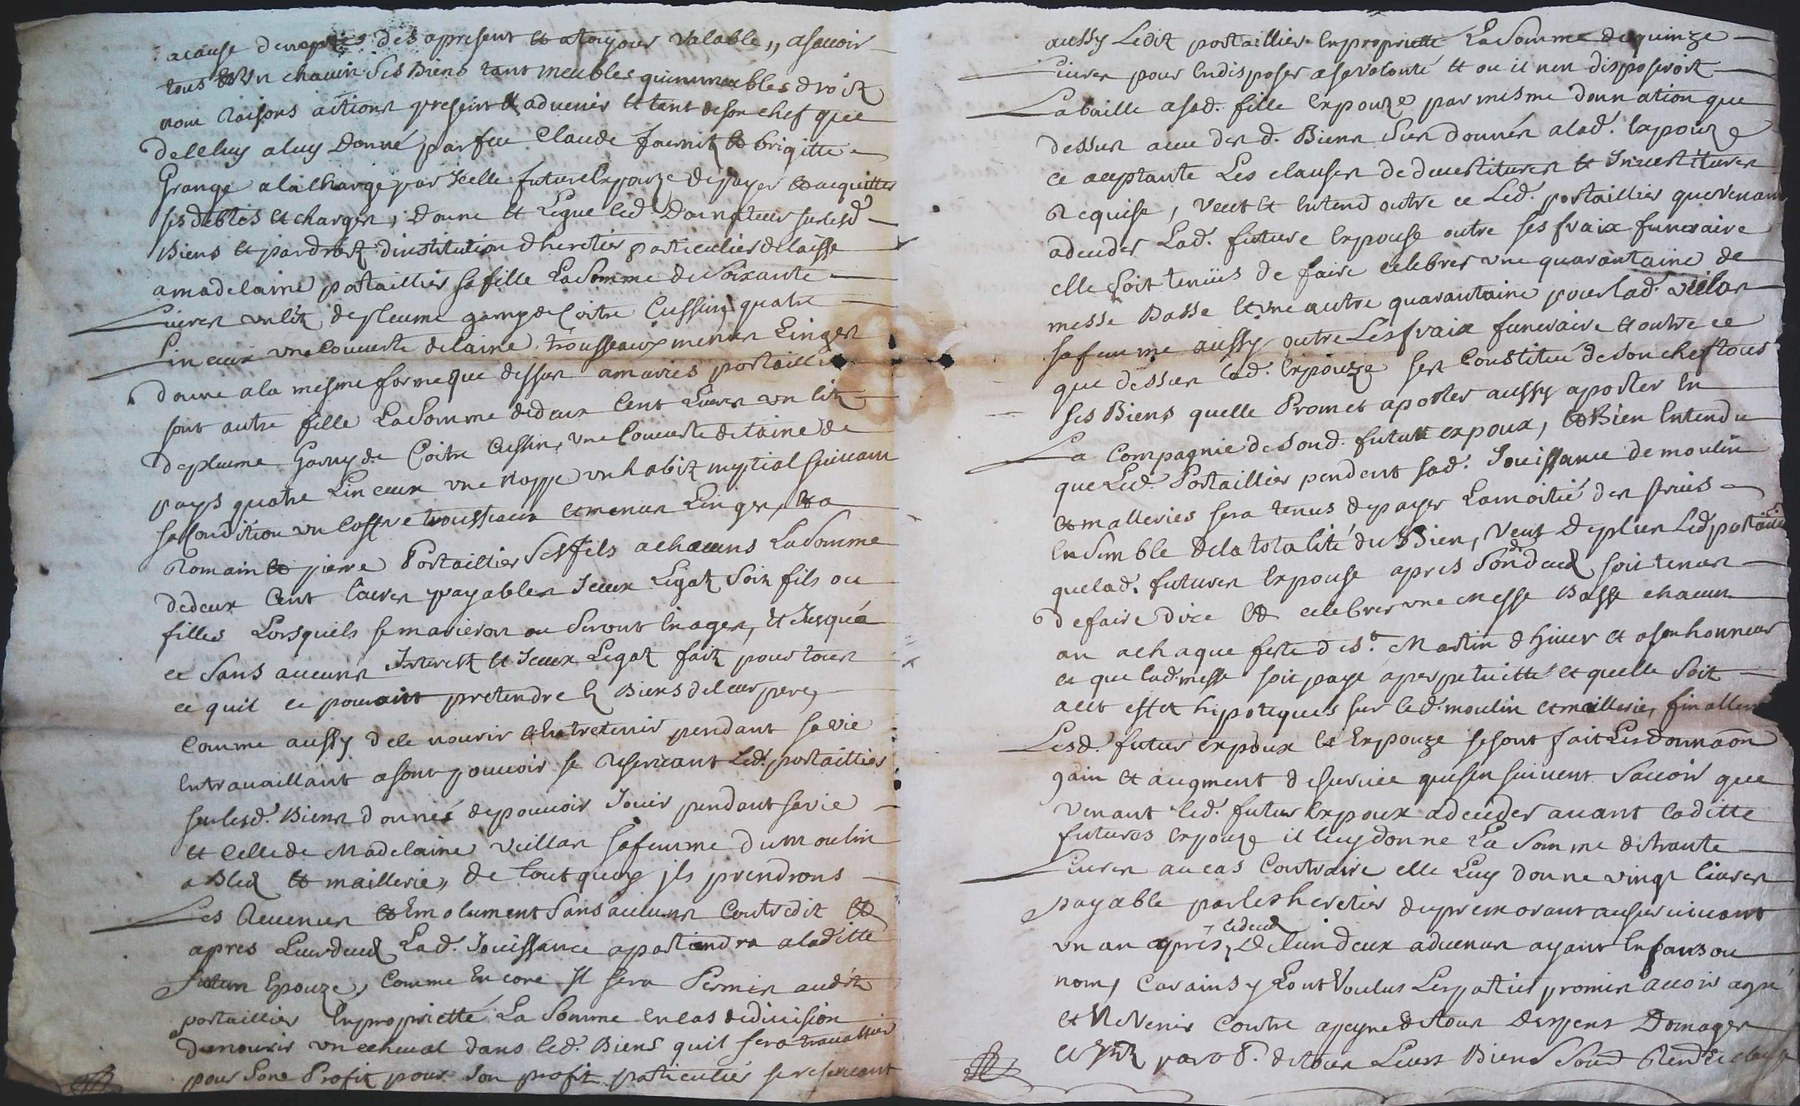 acause de nopces des apresent et atoujour valable, ascavoir
tous et un chacun ses Biens tant meubles quimmeubles droit
nom Raisons actions present et advenir et tant de son chef que
de celuy a luy Donné par feu Claude fournit et brigitte
Grange a la charge par Icelle future Expouze de payer et acquitter
ses debtes et charges, donne et Legue led. Donnateur sur lesd.
Biens et par droit dinstitution dheretier particulier delaisse
a madelaine portaillier sa fille La Somme de Soixante
Livres un lit de pleume garny de Coitre Cussin quatre
Linceux une Couverte de laine trousseaux menus Linges
donne a la mesme forme que dessus a marie portaillier
sont autre fille La Somme de deux Cent Livres un lit
de pleume Garny de Coitre Cussin, une Couverte de laine de
pays quatre Linceux une Nappe un habit nuptial suivant
sa Condition un Coffre trousseaux et menus Linges, et a
Romain et pierre Portaillier Ses fils a chacuns La Somme
de deux Cent Livres payables Iceux Legat Soit fils ou
filles Lorsquels se marieront ou Seront En ages, et Jusqua
ce Sans aucuns Interest et Iceux Legat fait pour tous
ce quil ce pouroit pretendre es Biens de leur pere,
Comme aussy de le nourir et Entretenir pendant sa vie
En travaillant a sont pouvoir se reservant Led. portaillier
sur lesd. Biens donnés de pouvoir Jouir pendant sa vie
et celle de Madelaine Veillan sa femme du moulin
a Bled et maillerie, de tout quoy ils prendrons
Les Revenus et Emolument Sans aucuns Contredit et
apres Leur deced Lad. Jouissance apartiendra a laditte
future Epouze, Comme Encore Il sera Permis audit
portaillier En proprietté La Somme En cas de division
De nourir un cheval dans led. Biens quil fera travallier
pour Sont Profit pour Son profit particulier se reservant
aussy Ledit portaillier En proprietté La Somme de quinze
Livres pour En disposer a sa volonté et ou il nen disposeroit
La baille a sad. fille Expouze par mesme donnation que
dessus avec des d. Biens Sus donnés a lad. Expouze
ce aceptante Les clauses de devestitures et Investitures
Requise, veut et Entend outre ce Led. portaillier que venant
a deceder Lad. future Expouse outre ses fraix funeraire
elle Soit tenuë de faire celebrer une quarantaine de
messe Basse et une autre quarantaine pour lad. veillan
sa femme aussy outre Les fraix funeraire et outre ce
que dessus Lad. Expouze Ses Constitué de Son chef tous
Ses Biens quelle Promet aporter aussy aporter En
La Compagnie de Sond. futur expoux, et Bien Entendu
que Led. Portaillier pendent sad. Jouissance de moulin
et malleries sera tenus de payer La moitié des frais
En Semble de la totalité du Bien, Veut de plus Led. portaillier
que lad. future Expouse apres Sond. deced soit tenus
de faire dire et celebrer une messe Basse chacun
an a chaque feste de St. Martin dhiver et a son honneur
et que lad. messe soit paye a perpetuitté et quelle Soit
a cet effet hipotequés sur led. moulin et maillerie, finallem.
Lesd. futur expoux et Expouze se sont fait Les donnaõn
gain et augment de survie quisen suivent Savoir que
venant led. futur Expoux a deceder avant laditte
future Expouze il luy donne La Somme de trante
Livres au cas Contraire elle Luy donne vingt Livres
payable par les heretier du premorant au survivant
un an apres le deced de lun deux advenus ayant Enfans ou
non, Car ainsy Lont voulus Les parties promis avoir agré
et Ne Venir Contre apeyne de tous Despens Domages